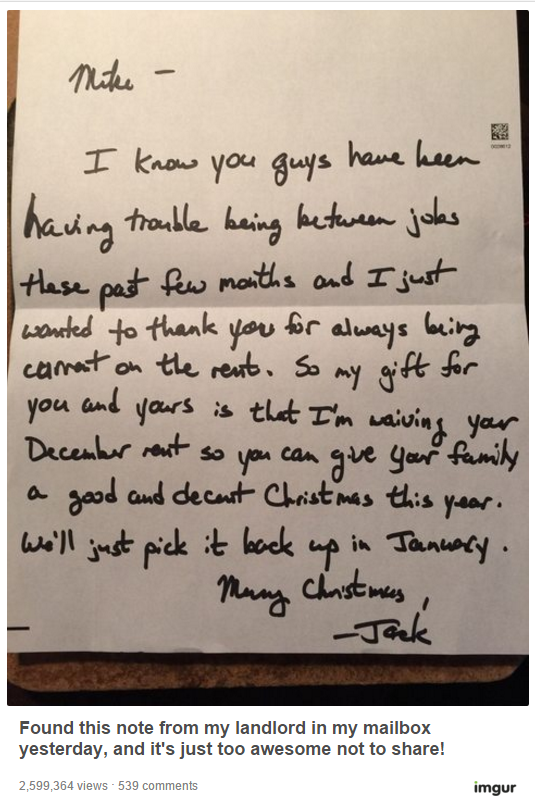 Mike –
I know you guys have been
having trouble being between jobs
these past few months and I just
wanted to thank you for always being
current on the rent. So my gift for
you and yours is that I'm waiving your
December rent so you can give your family
a good and decent Christmas this year.
We'll just pick it back up in January.
Merry Christmas,
–Jack
Found this note from my landlord in my mailbox
yesterday, and it's just too awesome not to share!
2,599,364 views · 539 comments
imgur